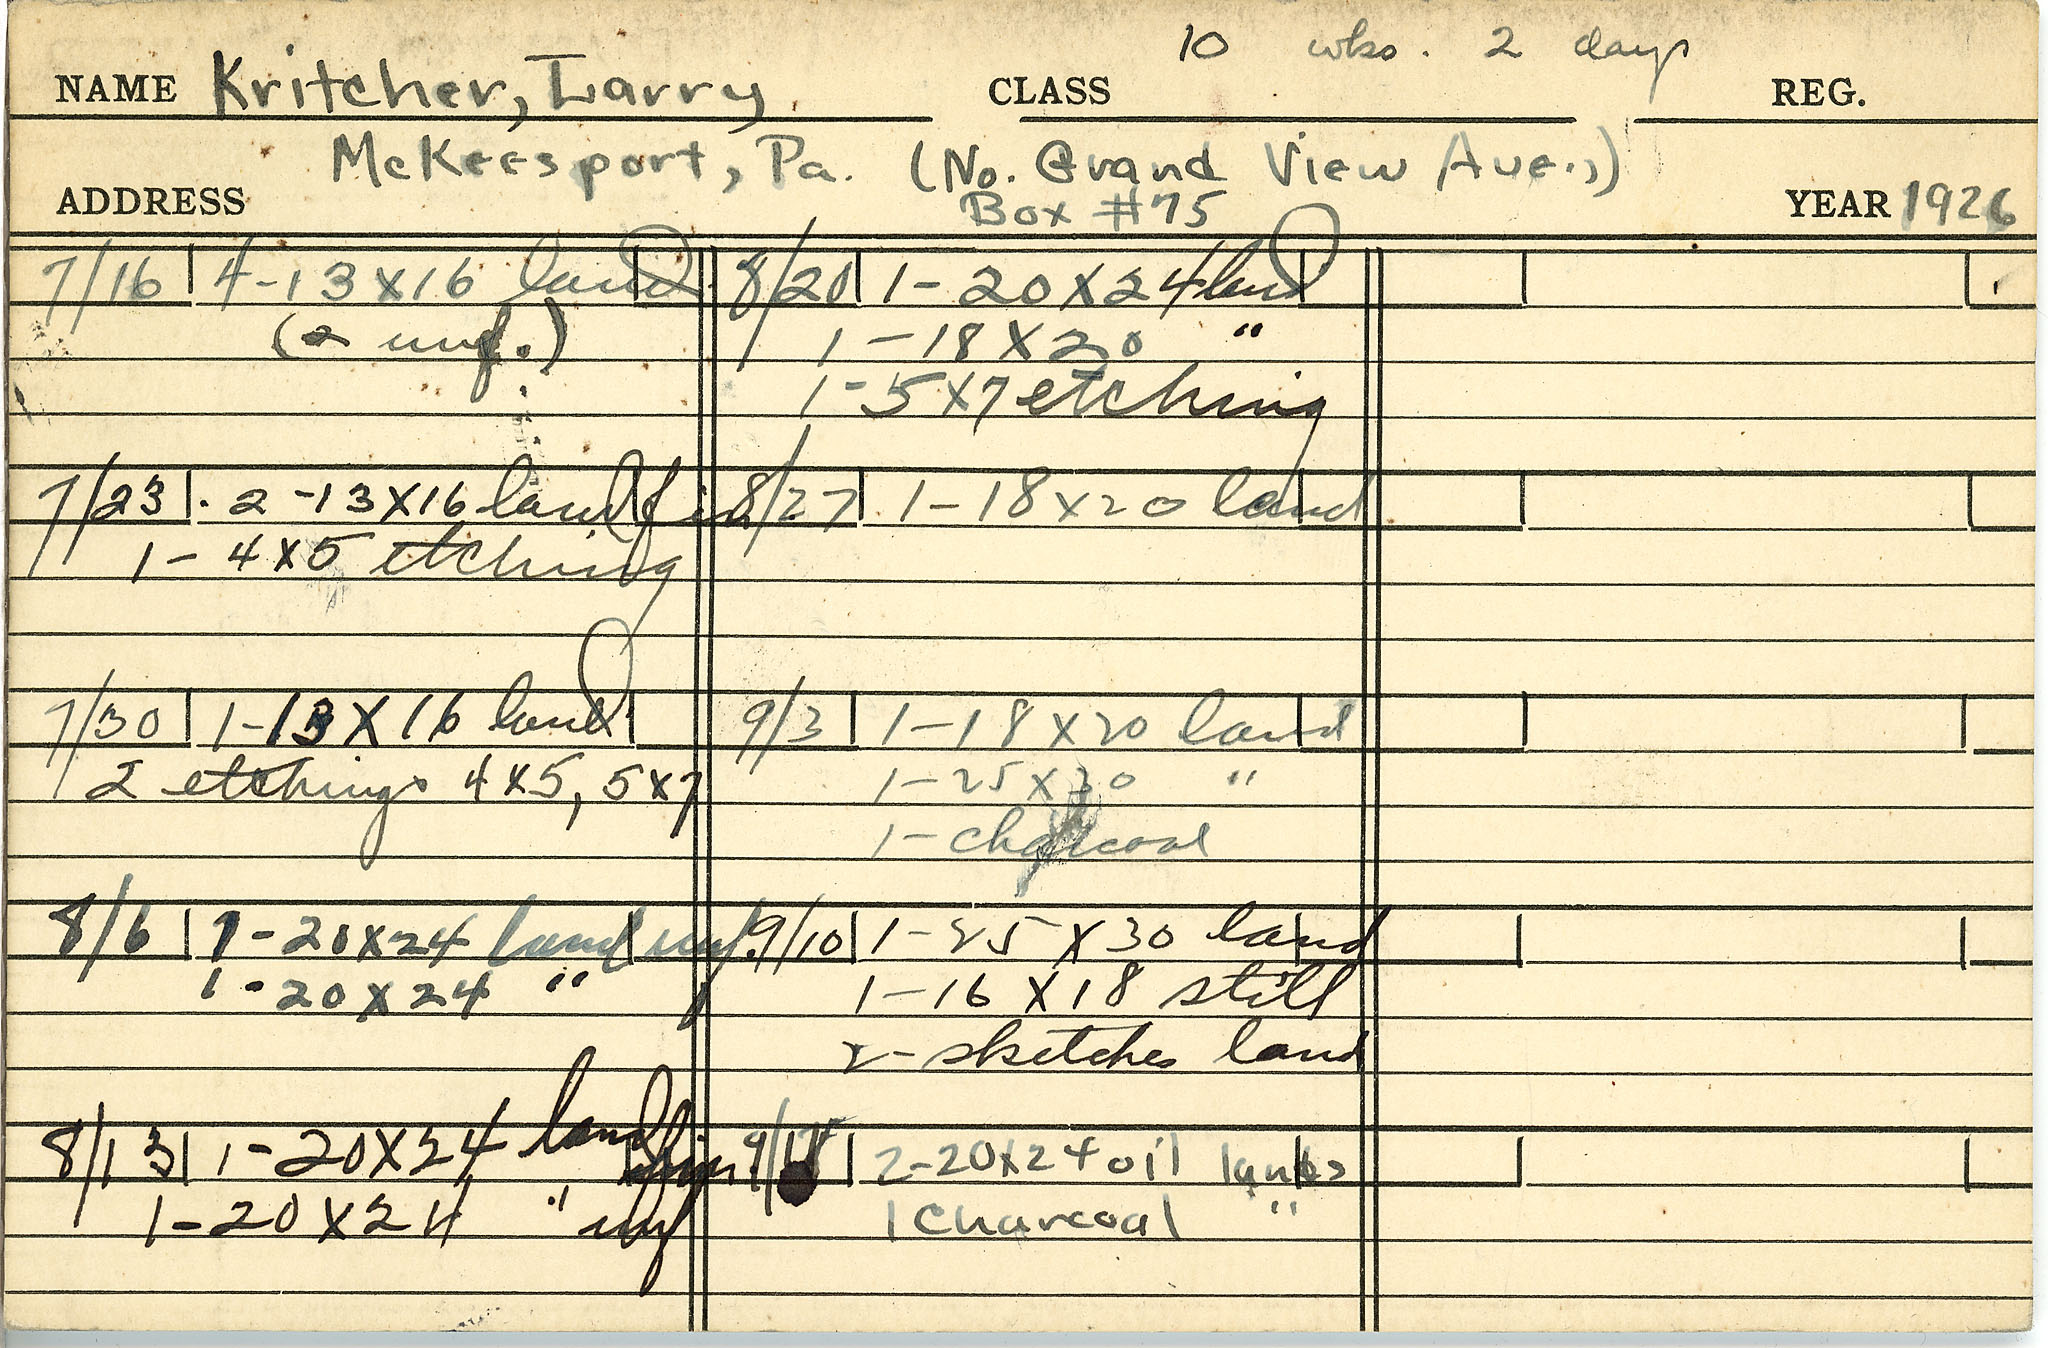 10 wks. 2 days
NAME Kritcher, Larry CLASS REG.
McKeesport, Pa. (No. Grand View Ave.,)
ADDRESS Box #75 YEAR 1926
7/16 4-13X16 land
(2 unf.)
7/23 2-13X16 land fin
1-4X5 etching
7/30 1-13X16 land
2 etchings 4X5, 5X7
8/6 1-20X24 land unf.
1-20X24 "
8/13 1-20X24 land fin.
1-20X24 " unf
8/20 1-20X24 land
1-18X20 "
1-5X7 etching
8/27 1-18X20 land
9/3 1-18X20 land
1-25X30 "
1-charcoal
9/10 1-25X30 land
1-16X18 still
2-sketches land
9/17 2-20X24 oil lands
1 charcoal "